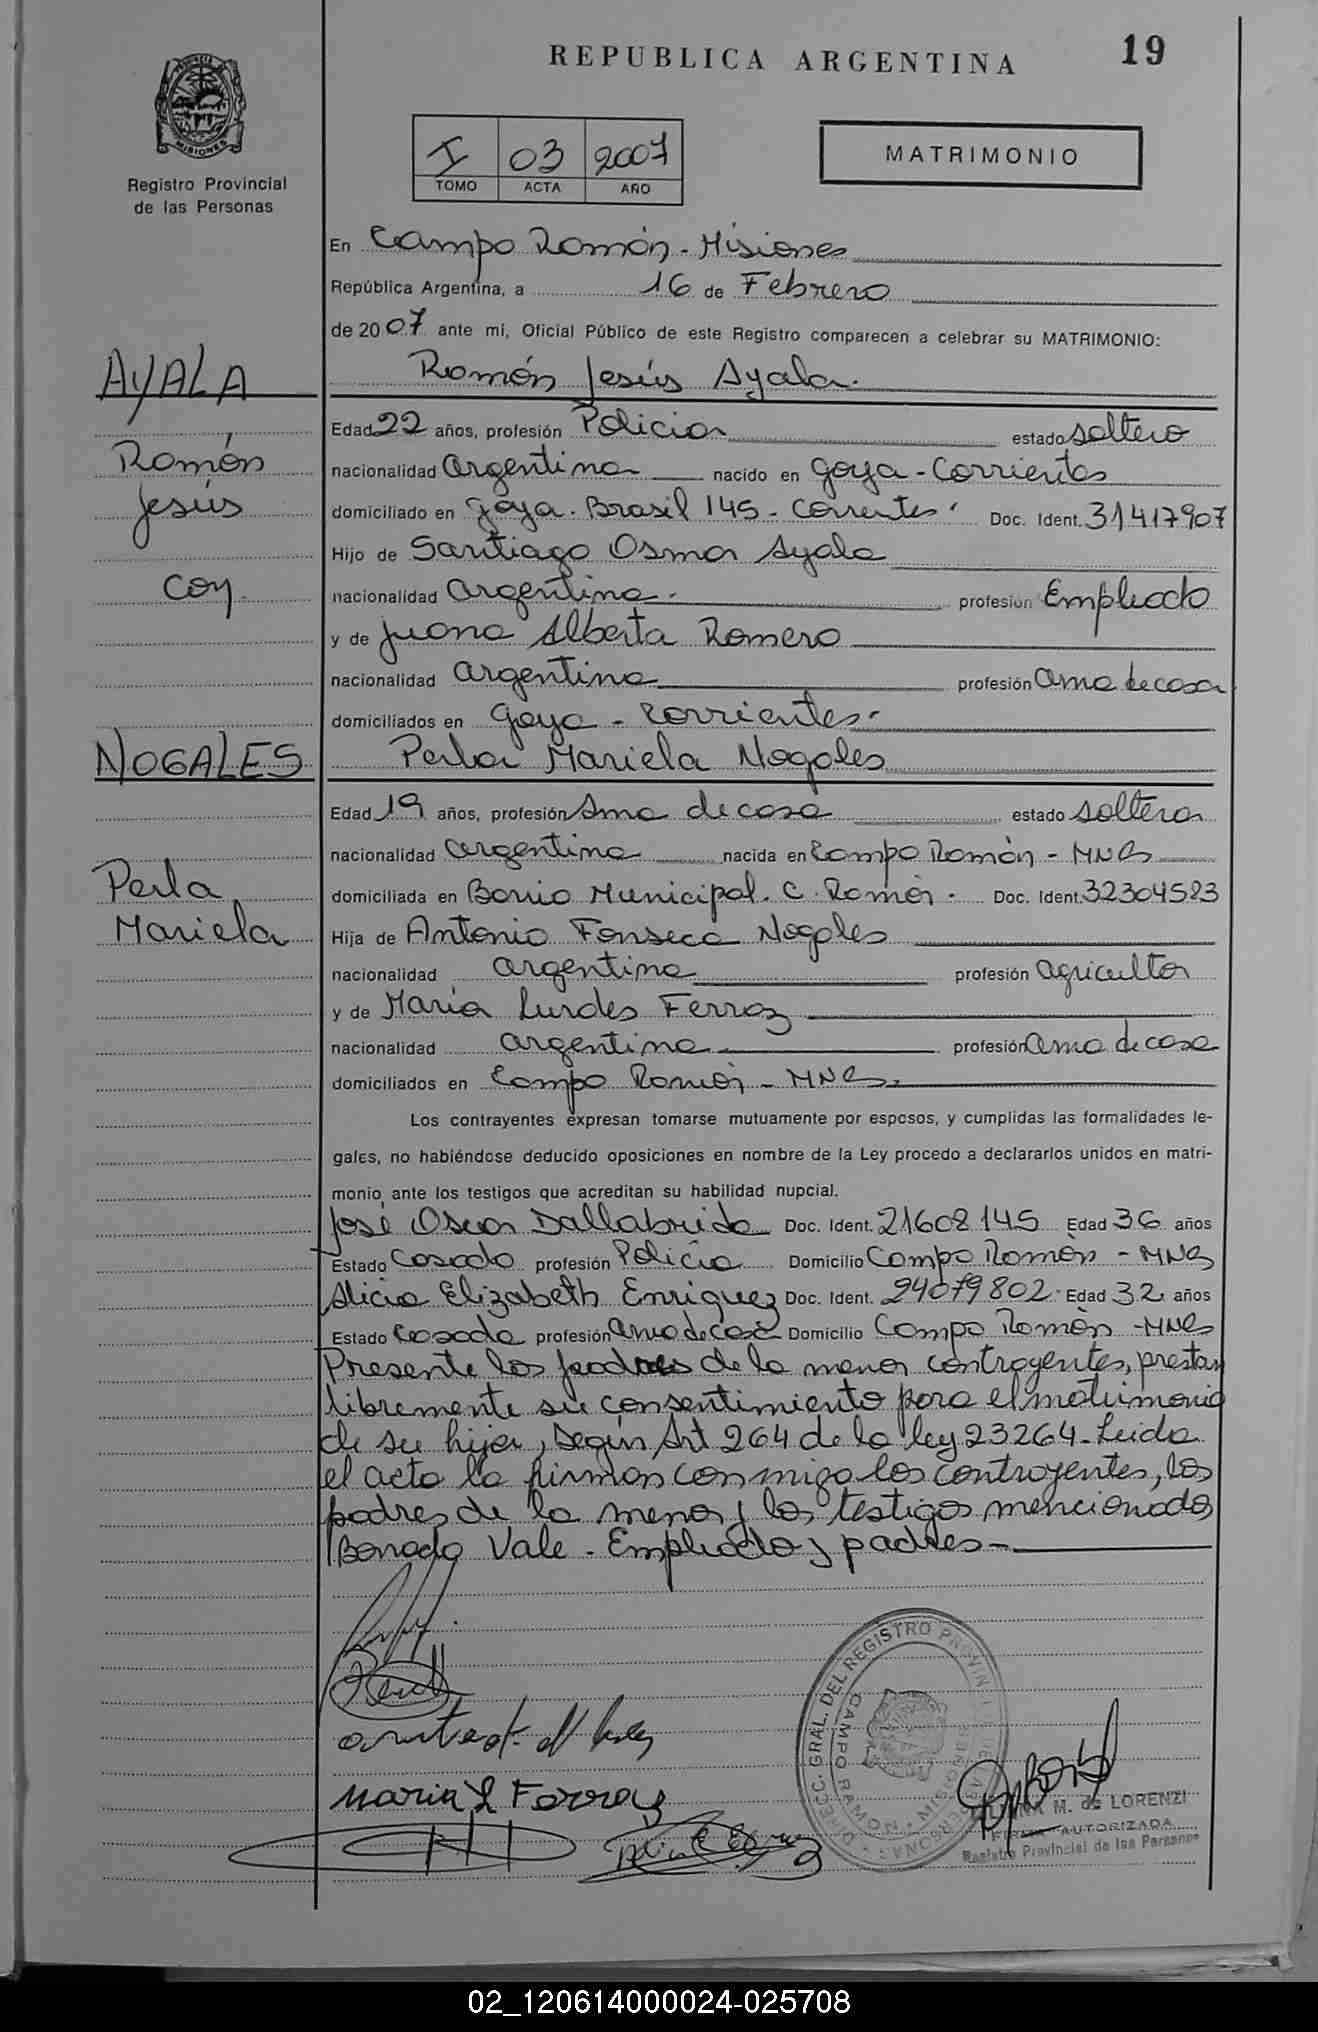 REPUBLICA ARGENTINA
19
MISIONES
Registro Provincial
de las Personas
I 03 2007
TOMO ACTA AÑO
MATRIMONIO
En Campo Ramón - Misiones
República Argentina, a 16 de Febrero
de 2007 ante mí, Oficial Público de este Registro comparecen a celebrar su MATRIMONIO:
AYALA
Ramón Jesús Ayala.
Edad 22 años, profesión Policia estado soltero
Ramón
nacionalidad argentina nacido en Goya - Corrientes
Jesús
domiciliado en Goya. Brasil 145 - Corrientes. Doc. Ident. 31417907
Hijo de Santiago Osmar Ayala
con
nacionalidad argentina. profesión Empleado
y de Juana Alberta Romero
nacionalidad argentina profesión ama de casa
domiciliados en Goya - Corrientes.
NOGALES
Perla Mariela Nogales
Edad 19 años, profesión Ama de casa estado soltera
nacionalidad argentina nacida en Campo Ramón - MNES
Perla
domiciliada en Barrio Municipal. C. Ramón. Doc. Ident. 32304583
Mariela
Hija de Antonio Fonseca Nogales
nacionalidad argentina profesión agricultor
y de María Lurdes Ferraz
nacionalidad argentina profesión ama de casa
domiciliados en Campo Ramón - MNES.
Los contrayentes expresan tomarse mutuamente por esposos, y cumplidas las formalidades le-
gales, no habiéndose deducido oposiciones en nombre de la Ley procedo a declararlos unidos en matri-
monio ante los testigos que acreditan su habilidad nupcial.
José Oscar Dallabrida Doc. Ident. 21608145 Edad 36 años
Estado Casado profesión Policía Domicilio Campo Ramón - MNES
Alicia Elizabeth Enriquez Doc. Ident. 24079802 Edad 32 años
Estado Casada profesión ama de casa Domicilio Campo Ramón - MNES
Presente los padres de la menor contrayentes, prestan
libremente su consentimiento para el matrimonio
de su hija, según Art 264 de la ley 23264. Leida
el acta la firman conmigo los contrayentes, los
padres de la menor y los testigos mencionados
Borrado Vale - Empleado y padres -
Maria L Ferraz
DIRECC. GRAL. DEL REGISTRO PROVINCIAL DE LAS PERSONAS
CAMPO RAMON - MISIONES
M. de LORENZI
FIRMA AUTORIZADA
Registro Provincial de las Personas
02_120614000024-025708